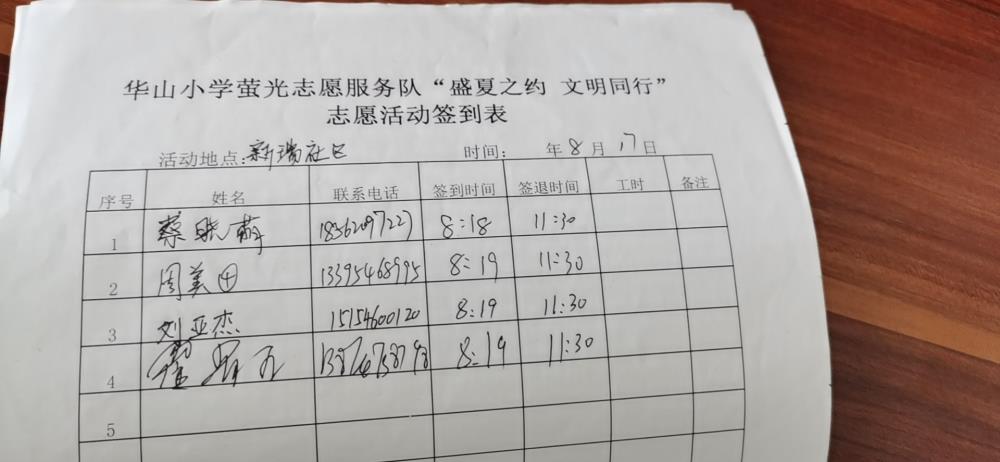 华山小学萤光志愿服务队“盛夏之约 文明同行”
志愿活动签到表
活动地点:新瑞社区 时间: 年8月17日
序号 姓名 联系电话 签到时间 签退时间 工时 备注
1 蔡 18562097227 8:18 11:30
2 周美田 13395468995 8:19 11:30
3 刘亚杰 15154600120 8:19 11:30
4 8:19 11:30
5